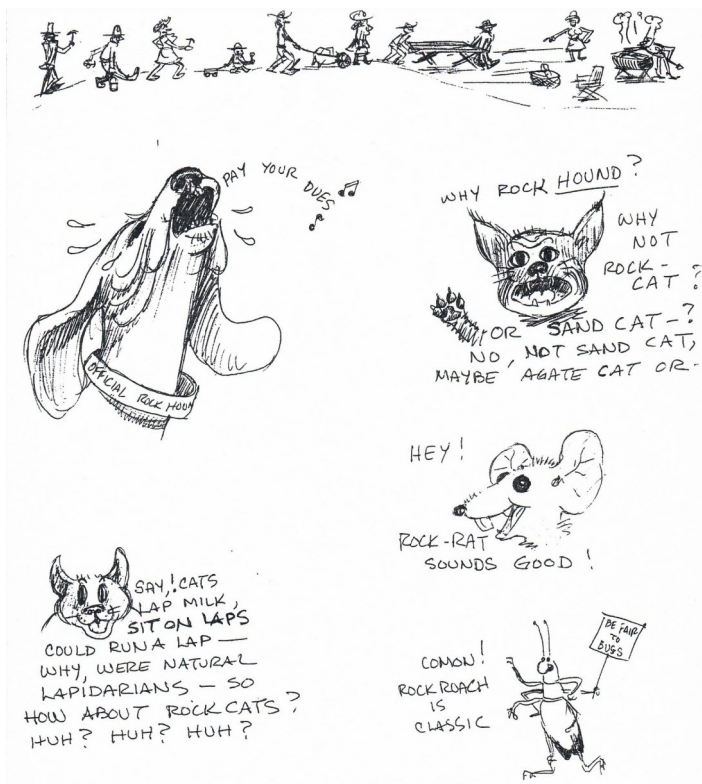 PAY YOUR DUES
OFFICIAL ROCK HOUN
WHY ROCK HOUND?
WHY
NOT
ROCK-
CAT?
OR SAND CAT-?
NO, NOT SAND CAT,
MAYBE AGATE CAT OR-
HEY!
ROCK-RAT
SOUNDS GOOD!
SAY,! CATS
LAP MILK,
SIT ON LAPS
COULD RUN A LAP —
WHY, WERE NATURAL
LAPIDARIANS — SO
HOW ABOUT ROCK CATS?
HUH? HUH? HUH?
BE FAIR
TO
BUGS
COMON!
ROCK ROACH
IS
CLASSIC